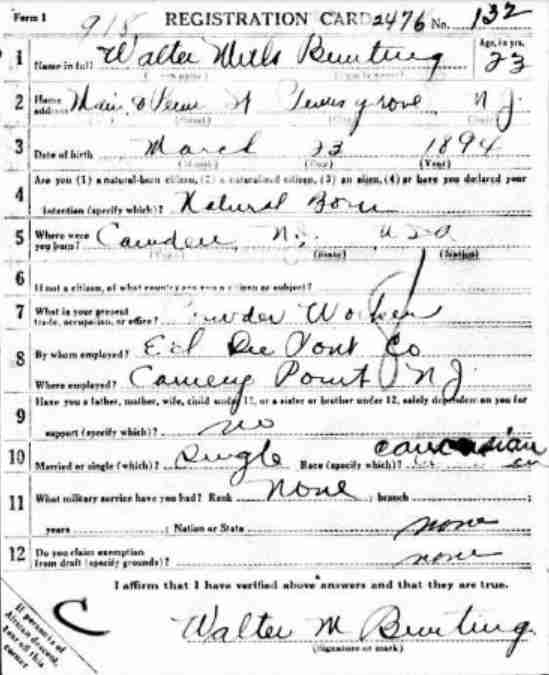 Form 1 918 REGISTRATION CARD 2476 No. 132
1 Name in full Walter Mills Bunting Age, in yrs. 23
2 Home address Main & Penn St Penns grove N J.
(Street) (State)
3 Date of birth March 23 1894
(Month) (Day) (Year)
4 Are you (1) a natural-born citizen, (2) a naturalized citizen, (3) an alien, (4) or have you declared your
intention (specify which)? Natural Born
5 Where were you born? Camden N.J. USA
(Town) (State) (Nation)
6 If not a citizen, of what country are you a citizen or subject?
7 What is your present trade, occupation, or office? Powder Worker
8 By whom employed? E d Du Pont Co
Where employed? Carneys Point NJ
9 Have you a father, mother, wife, child under 12, or a sister or brother under 12, solely dependent on you for
support (specify which)? no
10 Married or single (which)? Single Race (specify which)? caucasian
11 What military service have you had? Rank none ; branch ;
years ; Nation or State none
12 Do you claim exemption from draft (specify grounds)? none
I affirm that I have verified above answers and that they are true.
C
Walter M Bunting
(Signature or mark)
If person is of
African descent,
tear off this
corner